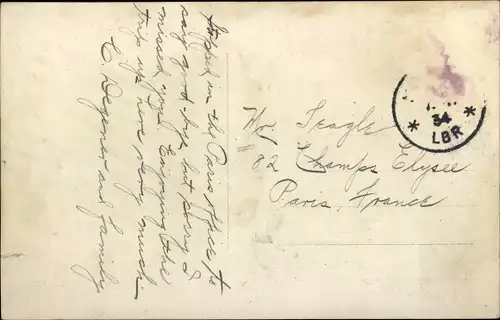 Stopped in the Paris office to
say good bye, but sorry I
missed you. Enjoying the
trip up here very much.
C. Degener and family
Mr. Teagle
#82 Champs Elysee
Paris, France
34
* LBR *